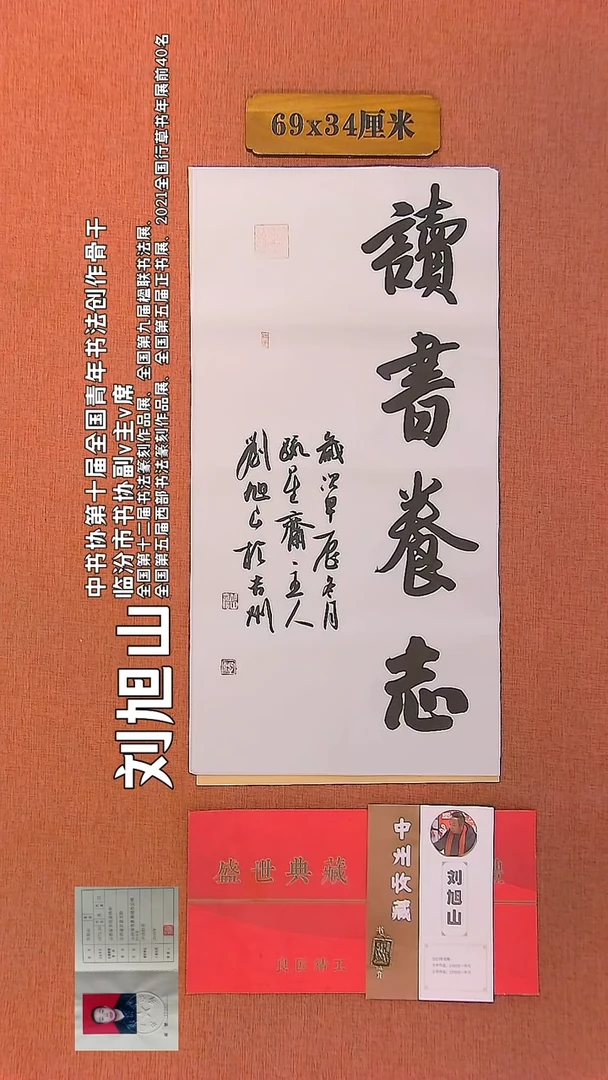 69x34厘米
讀書養志
歲次甲辰冬月
疏星齋主人
劉旭山於吉州
刘旭山
中书协第十届全国青年书法创作骨干
临汾市书协副v主v席
全国第十二届书法篆刻作品展、全国第九届楹联书法展、
全国第五届西部书法篆刻作品展、全国第五届正书展、2021全国行草书年展前40名
盛世典藏
中州收藏
刘旭山